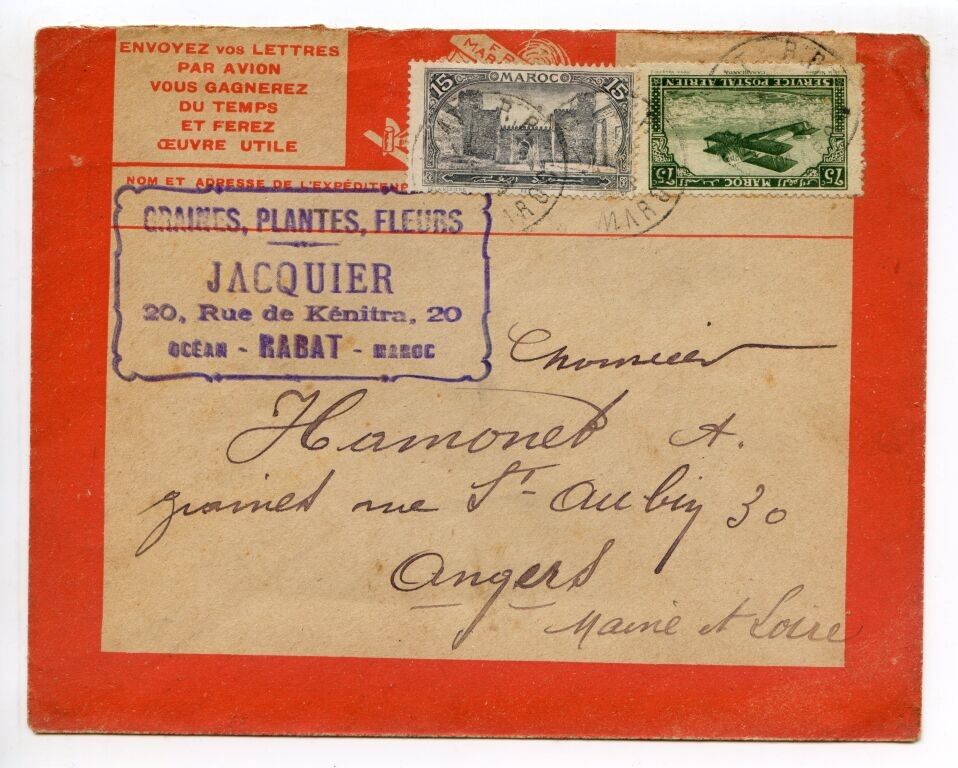 ENVOYEZ VOS LETTRES
PAR AVION
VOUS GAGNEREZ
DU TEMPS
ET FEREZ
ŒUVRE UTILE
MAROC
15 15
SERVICE POSTAL AERIEN
75 MAROC 75
MAROC
NOM ET ADRESSE DE L'EXPÉDITEUR
GRAINES, PLANTES, FLEURS
JACQUIER
20, Rue de Kénitra, 20
OCÉAN - RABAT - MAROC
Monsieur
Hamonet A.
graines rue St-Aubin 30
Angers
Maine et Loire